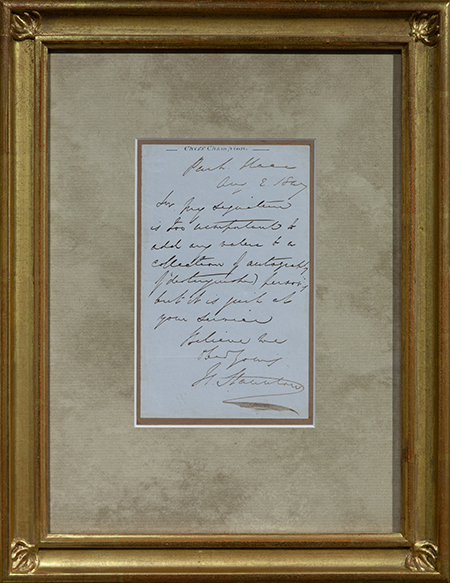 Chess Champion.
Aug 2. 18
Sir My signature
is too unimportant to
add any value to a
collection of autographs
of distinguished persons,
but it is quite at
your service
Believe me
Yours
H. Staunton